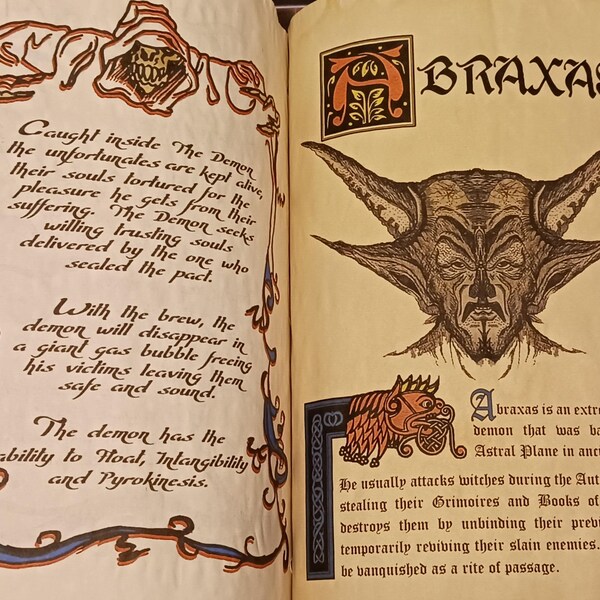 Caught inside The Demon
the unfortunates are kept alive,
their souls tortured for the
pleasure he gets from their
suffering. The Demon seeks
willing trusting souls
delivered by the one who
sealed the pact.
With the brew, the
demon will disappear in
a giant gas bubble freeing
his victims leaving them
safe and sound.
The demon has the
ability to float, Intangibility
and Pyrokinesis.
ABRAXAS
Abraxas is an extre
demon that was ba
Astral Plane in anc
He usually attacks witches during the Aut
stealing their Grimoires and Books of
destroys them by unbinding their previ
temporarily reviving their slain enemies.
be vanquished as a rite of passage.